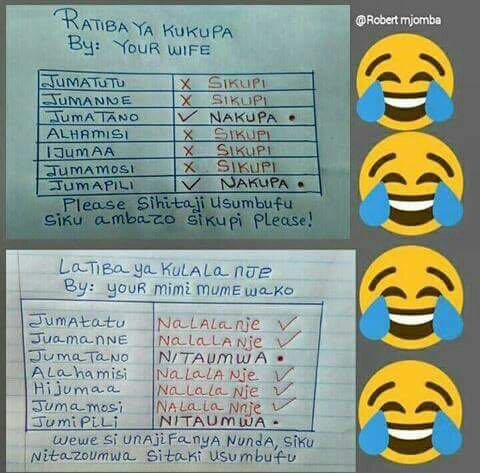 @Robert mjomba
RATIBA YA KUKUPA
By: YOUR WIFE
JUMATUTU X SIKUPI
JUMANNE X SIKUPI
JUMATANO ✓ NAKUPA •
ALHAMISI X SIKUPI
IJUMAA X SIKUPI
JUMAMOSI X SIKUPI
JUMAPILI ✓ NAKUPA •
Please Sihitaji Usumbufu
Siku ambazo sikupi Please!
LATIBA ya KULALA NJE
By: your mimi mume wako
Jumatatu NaLALa nje ✓
JuamaNNE NaLaLA Nje ✓
JumaTaNO NITAUMWA •
ALahamisi NaLaLA Nje ✓
Hijumaa NaLaLa Nje ✓
Jumamosi NALaLa Nnje ✓
JUmiPiLi NITAUMWA •
wewe Si UNAjiFanya NUNDA, SikU
Nitazoumwa Sitaki Usumbufu